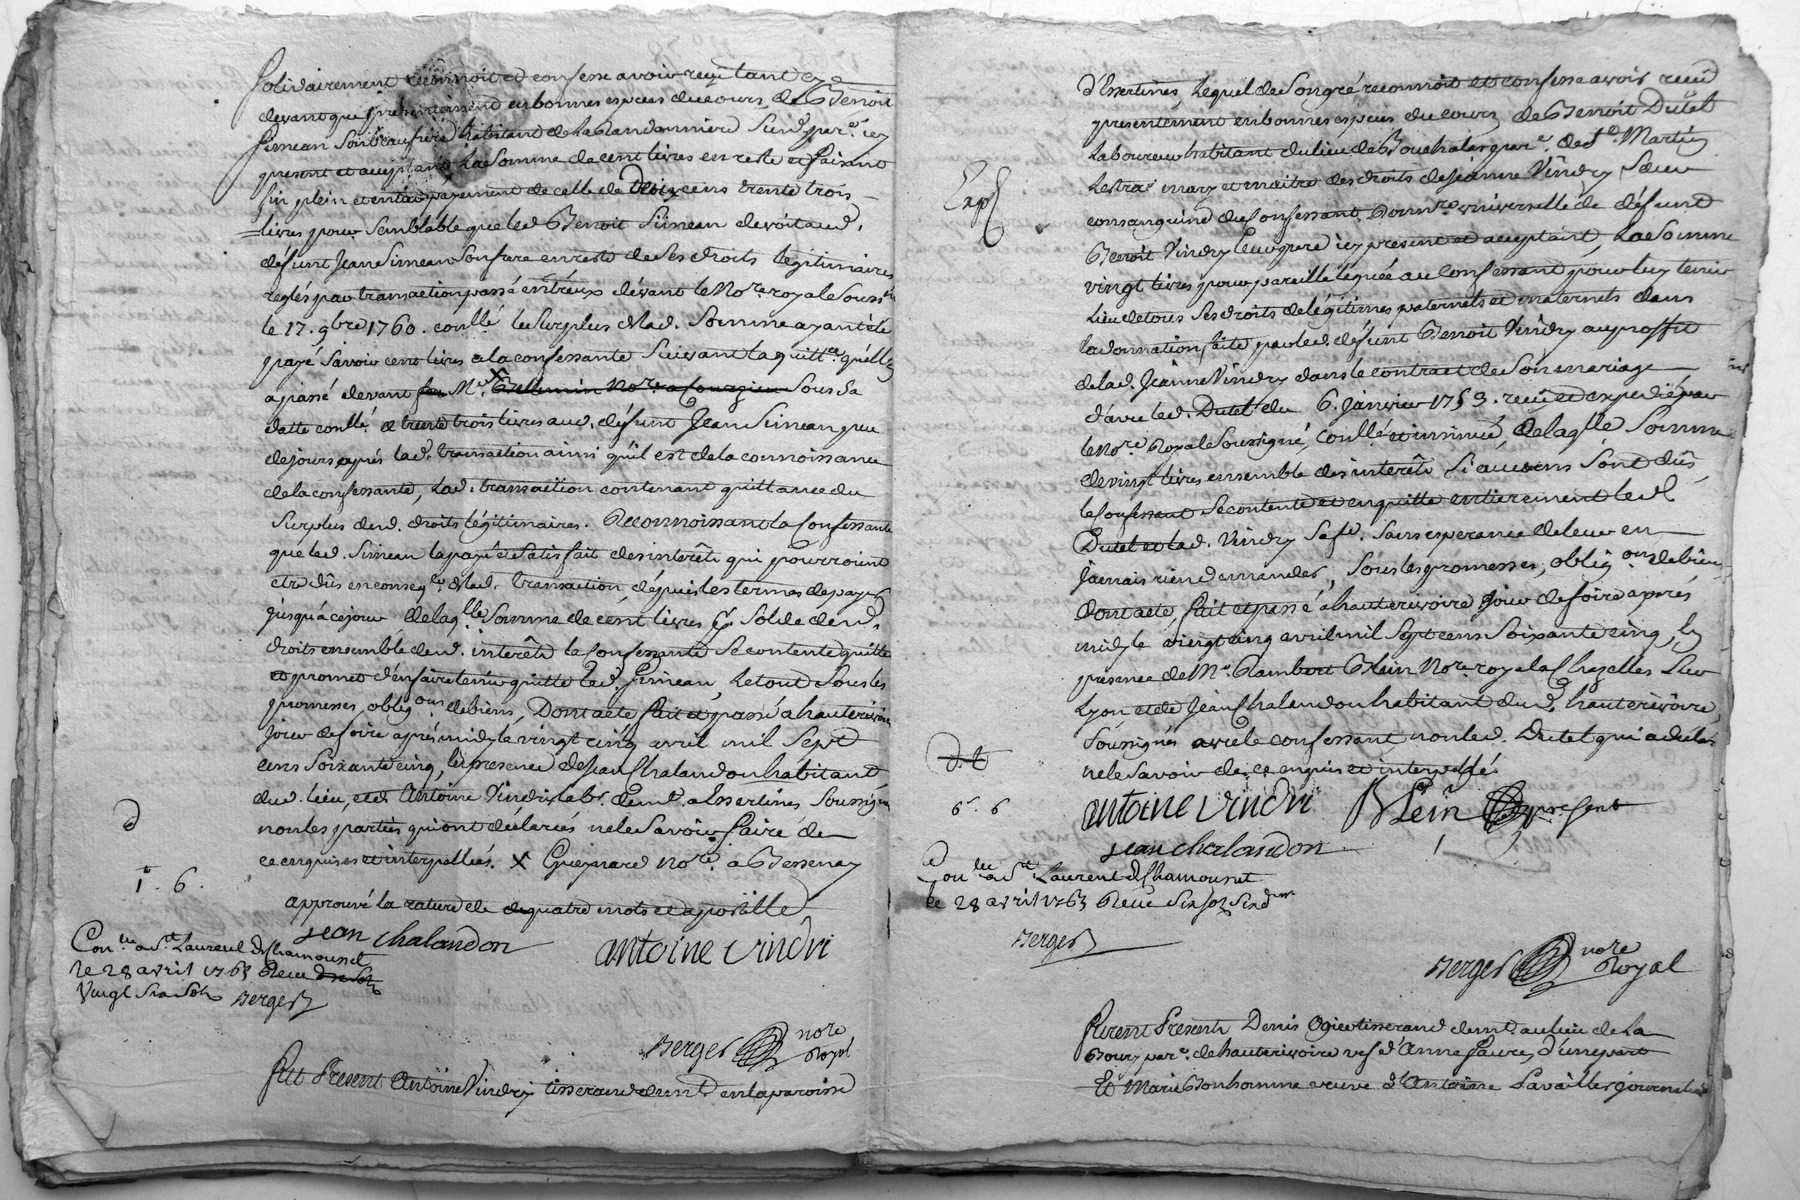 solidairement reconnoit et confesse avoir reçu tant cy
devant que presentement en bonnes especes du cours, de Benoit
Simean son beaufrere habitant de la Randonniere susd. par.e icy
present et acceptant la somme de cent livres en reste et faisant
fin plein et entier payement de celle de trois cens trente trois
livres pour semblable que led. Benoit Simean devoit aud.
défunt Jean Simean son frere en reste de ses droits légitimaires
reglés par transaction passé entr'eux devant le No.re royal soussig.
le 17. 9bre 1760. conllé le surplus de lad. somme ayant été
payé savoir cent livres a la confessante suivant la quitt.ce qu'elle
a passé devant M.e X Bellemin No.re a Courzieu sous sa
datte conllé. & trente trois livres aud. défunt Jean Simean peu
de jours après lad. transaction ainsi qu'il est de la connoissance
de la confessante, lad. transaction contenant quittance du
surplus desd. droits légitimaires. Reconnoissant la confessante
que led. Simean la payé et satisfait des interêts qui pourroient
etre dûs en conseq.ce de lad. transaction, dépuis les termes de payer
jusqu'à ce jour de laq.lle somme de cent livres p. solde desd.
droits ensemble desd. interêts la confessante se contente quitte
et promet d'en faire tenir quitte led. Simean, le tout sous les
promesses, oblig.ons de biens, Dont acte fait et passé a hauterivoire
jour de foire après midy le vingt cinq avril mil sept
cens soixante cinq, en presence de Jean Chalandon habitant
dud. lieu, et d'Antoine Vindry lab.r demt. a Essertines soussignés
non les parties qui ont déclarées ne le savoir faire de
ce enquises et interpellées. X Guignard no.re a Bessenay
approuvé la rature de quatre mots et apostille
d
1.# 6.
jean chalandon antoine vindri
Con.llé a S.t Laurent de Chamousset
le 28 avril 1765 Reçu
Vingt six sols Berger
Berger no.re Royal
Fut Present Antoine Vindry tisserand demt. en la paroisse
d'Essertines, lequel de son gré reconnoit et confesse avoir reçu
presentement en bonnes especes du cours de Benoit Dutel
laboureur habitant du lieu de Bouchala par.e de S.t Martin
Lestra mary et maitre des droits de Jeanne Vindry sœur
Exp.
consanguine du confessant donat.re universelle de défunt
Benoit Vindry leur pere icy present et acceptant, la somme
vingt livres pour pareille léguée au confessant pour luy tenir
lieu de tous ses droits de légitimes paternels et maternels dans
la donnation faite par led. défunt Benoit Vindry au proffit
de lad. Jeanne Vindry dans le contract de son mariage
d'avec led. Dutel du 6. Janvier 1753. reçu et expedié par
le No.re Royal Soussigné, conllé et insinué, de laq.lle somme
de vingt livres ensemble des interêts si aucuns sont dûs,
le confessant se contente et en quitte entierement led.
Dutel et lad. Vindry sa fe. sans esperance de leur en
jamais rien demander, sous les promesses, oblig.ons de biens
dont acte, fait et passé a hauterivoire jour de foire après
midy le viengt cinq avril mil sept cens soixante cinq, en
presence de M.e Rambert Blein No.re royal a Chazelles sur
Lyon et de Jean Chalandon habitant dud. hauterivoire,
soussignés avec le confessant non led. Dutel qui a declaré
ne le savoir de ce enquis et interpellé.
d.t
6.s 6
antoine vindri Blein present
jean chalandon
Con.llé a S.t Laurent de Chamousset
le 28 avril 1765 Reçu six sols six d.rs
Berger
Berger no.re Royal
Furent Presents Denis Ogier tisserand demt. au lieu de la
Bourg par.e de hauterivoire vef d'Anne Faure, d'une part
Et Marie Bonhomme veuve d'Antoine Lavaille